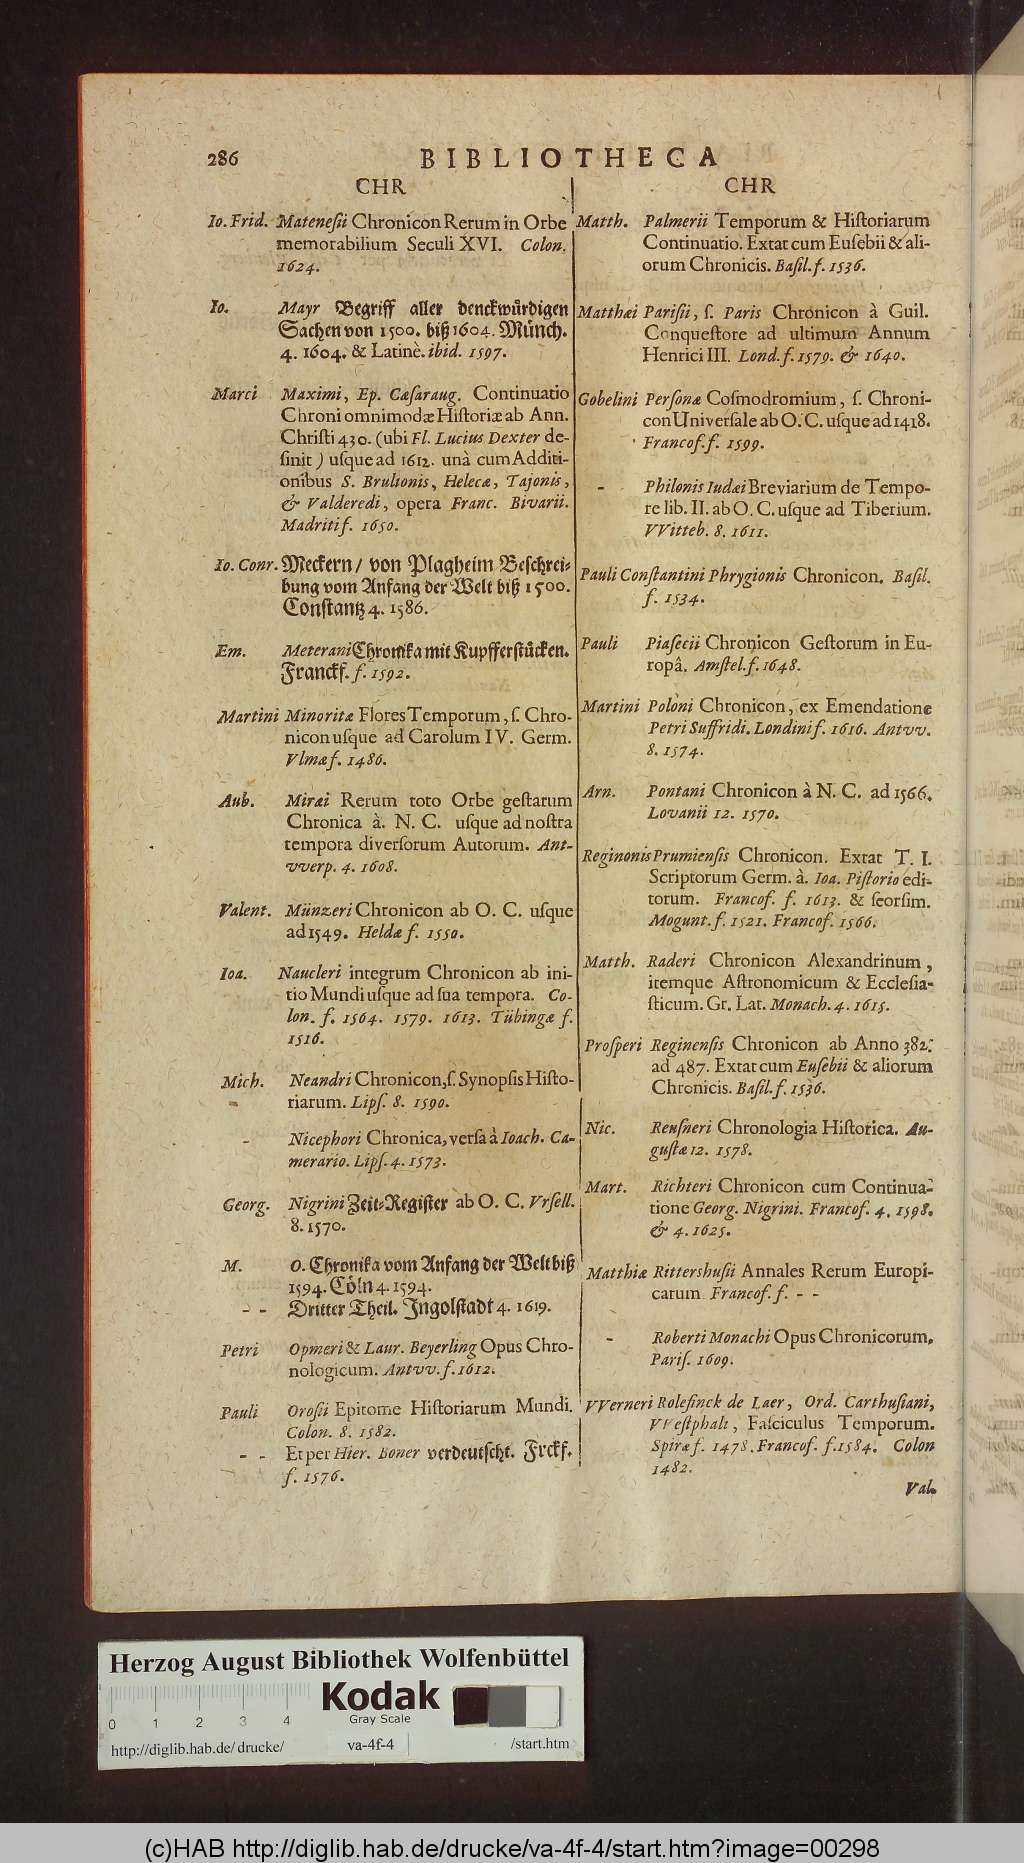 286 BIBLIOTHECA
CHR
Io. Frid. Mateneſii Chronicon Rerum in Orbe
memorabilium Seculi XVI. Colon.
1624.
Io. Mayr Begriff aller denckwuͤrdigen
Sachen von 1500. biß 1604. Muͤnch.
4. 1604. & Latinè. ibid. 1597.
Marci Maximi, Ep. Cæſaraug. Continuatio
Chroni omnimodæ Hiſtoriæ ab Ann.
Chriſti 430. (ubi Fl. Lucius Dexter de-
ſinit) uſque ad 1612. unà cum Additi-
onibus S. Brulionis, Helecæ, Tajonis,
& Valderedi, opera Franc. Bivarii.
Madriti f. 1650.
Io. Conr. Meckern / von Plagheim Beſchrei⸗
bung vom Anfang der Welt biß 1500.
Conſtantz 4. 1586.
Em. Meterani Chronika mit Kupfferſtuͤcken.
Franckf. f. 1592.
Martini Minoritæ Flores Temporum, ſ. Chro-
nicon uſque ad Carolum IV. Germ.
Vlmæ f. 1486.
Aub. Miræi Rerum toto Orbe geſtarum
Chronica à. N. C. uſque ad noſtra
tempora diverſorum Autorum. Ant-
vverp. 4. 1608.
Valent. Münzeri Chronicon ab O. C. uſque
ad 1549. Heldæ f. 1550.
Ioa. Naucleri integrum Chronicon ab ini-
tio Mundi uſque ad ſua tempora. Co-
lon. f. 1564. 1579. 1613. Tübingæ f.
1516.
Mich. Neandri Chronicon, ſ. Synopſis Hiſto-
riarum. Lipſ. 8. 1590.
- Nicephori Chronica, verſa à Ioach. Ca-
merario. Lipſ. 4. 1573.
Georg. Nigrini Zeit⸗Regiſter ab O. C. Vrſell.
8. 1570.
M. O. Chronika vom Anfang der Welt biß
1594. Coͤln 4. 1594.
- - Dritter Theil. Ingolſtadt 4. 1619.
Petri Opmeri & Laur. Beyerling Opus Chro-
nologicum. Antvv. f. 1612.
Pauli Oroſii Epitome Hiſtoriarum Mundi.
Colon. 8. 1582.
- - Et per Hier. Boner verdeutſcht. Frckf.
f. 1576.
CHR
Matth. Palmerii Temporum & Hiſtoriarum
Continuatio. Extat cum Euſebii & ali-
orum Chronicis. Baſil. f. 1536.
Matthæi Pariſii, ſ. Paris Chronicon à Guil.
Conqueſtore ad ultimum Annum
Henrici III. Lond. f. 1579. & 1640.
Gobelini Perſonæ Coſmodromium, ſ. Chroni-
con Univerſale ab O. C. uſque ad 1418.
Francof. f. 1599.
- Philonis Iudæi Breviarium de Tempo-
re lib. II. ab O. C. uſque ad Tiberium.
VVitteb. 8. 1611.
Pauli Conſtantini Phrygionis Chronicon. Baſil.
f. 1534.
Pauli Piaſecii Chronicon Geſtorum in Eu-
ropâ. Amſtel. f. 1648.
Martini Poloni Chronicon, ex Emendatione
Petri Suffridi. Londini f. 1616. Antvv.
8. 1574.
Arn. Pontani Chronicon à N. C. ad 1566.
Lovanii 12. 1570.
Reginonis Prumienſis Chronicon. Extat T. I.
Scriptorum Germ. à. Ioa. Piſtorio edi-
torum. Francof. f. 1613. & ſeorſim.
Mogunt. f. 1521. Francof. 1566.
Matth. Raderi Chronicon Alexandrinum,
itemque Aſtronomicum & Eccleſia-
ſticum. Gr. Lat. Monach. 4. 1615.
Proſperi Reginenſis Chronicon ab Anno 382.
ad 487. Extat cum Euſebii & aliorum
Chronicis. Baſil. f. 1536.
Nic. Reuſneri Chronologia Hiſtorica. Au-
guſtæ 12. 1578.
Mart. Richteri Chronicon cum Continua-
tione Georg. Nigrini. Francof. 4. 1598.
& 4. 1625.
Matthiæ Rittershuſii Annales Rerum Europi-
carum Francof. f. - -
- Roberti Monachi Opus Chronicorum.
Pariſ. 1609.
VVerneri Roleſinck de Laer, Ord. Carthuſiani,
VVeſtphali, Faſciculus Temporum.
Spiræ f. 1478. Francof. f. 1584. Colon
1482.
Val.
Herzog August Bibliothek Wolfenbüttel
Kodak
Gray Scale
0 1 2 3 4
http://diglib.hab.de/drucke/ va-4f-4 /start.htm
(c)HAB http://diglib.hab.de/drucke/va-4f-4/start.htm?image=00298